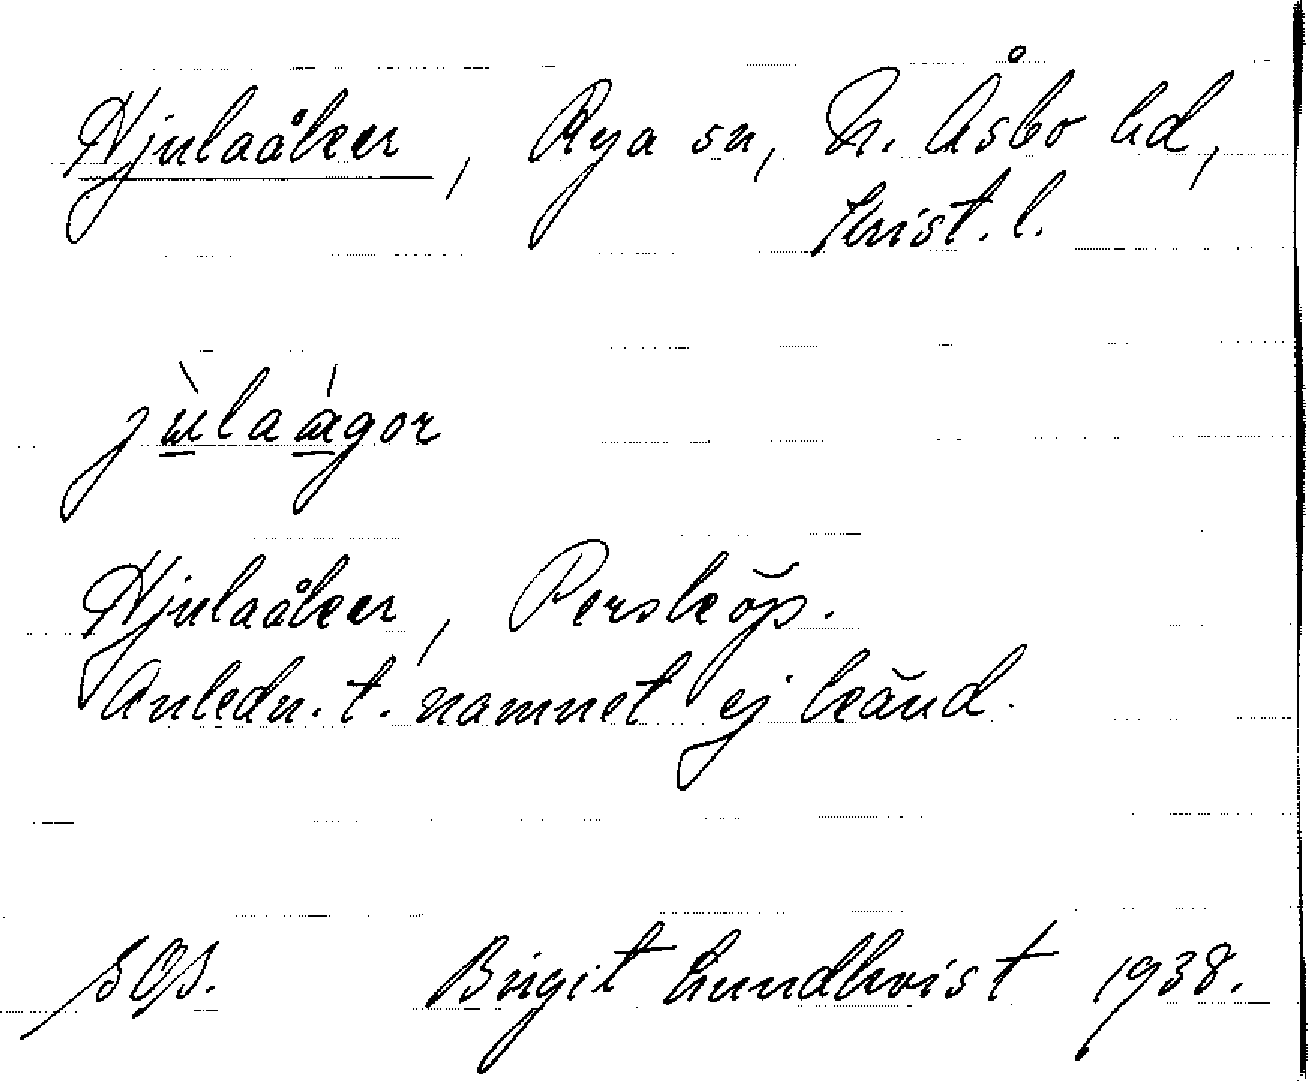 Hjulaåker, Rya sn, N. Åsbo hd,
Krist. l.
jùlaágor
Hjulaåker, Persköp.
Anledn. t. namnet ej känd.
Birgit Lundkvist 1938.